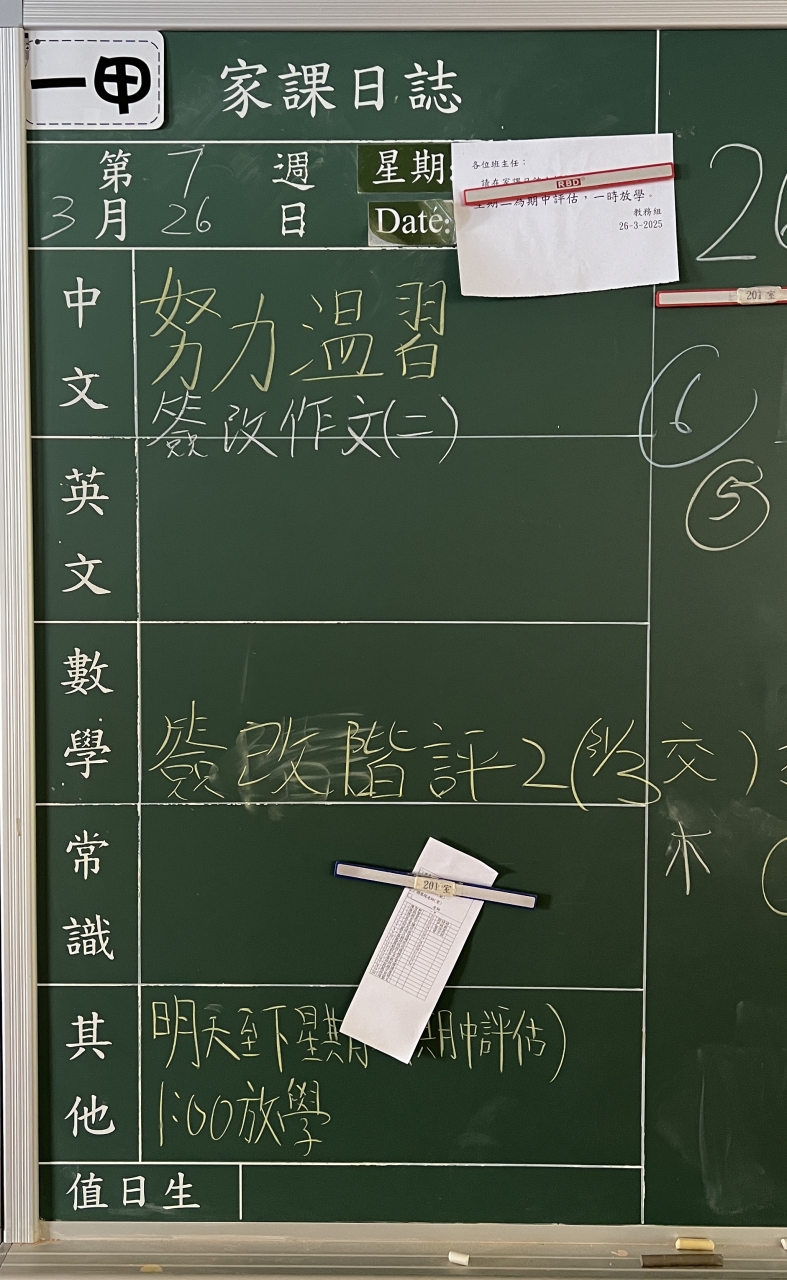 一甲
家課日誌
第 7 週
星期:
3 月 26 日
Date:
各位班主任：
RBD
為期中評估，一時放學。
教務組
26-3-2025
2
201 室
中文
努力溫習
簽改作文(二)
6
5
英文
數學
簽改階評2(31/3交)
木
常識
201 室
其他
明天至下星期 期中評估)
1:00放學
值日生